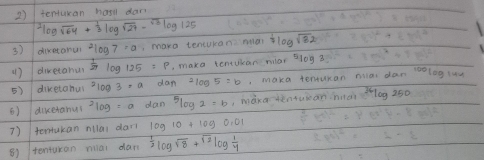 2) tentukan hasil dari
²log √64 + ⅓log √27 - log 125
3) diketahui ²log 7 = a, maka tentukan nilai log √82
4) diketahui log 125 = P, maka tentukan nilai ⁵log
5) diketahui ²log 3 = a dan ²log 5 = b, maka tentukan nilai dari ¹⁰⁰log 144
6) diketahui ²log = a dan ⁵log 2 = b, maka tentukan nilai log 250
7) tentukan nilai dari log 10 + log 0.01
8) tentukan nilai dari log √8 + log ¼